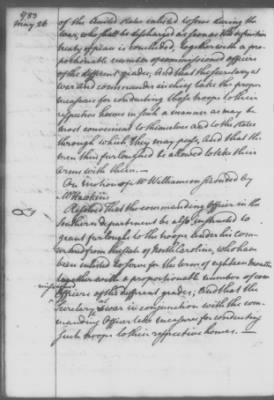 1783
May 26
of the United States enlisted to serve during the
war, who shall be discharged as soon as the definitive
treaty of peace is concluded, together with a pro-
portionable number of commissioned officers
of the different grades; And that the secretary at
war and commander in chief take the proper
measures for conducting those troops to their
respective homes in such a manner as may be
most convenient to themselves and to the states
through which they may pass, And that the
men thus furloughed be allowed to take their
arms with them.
On motion of Mr Williamson seconded by
Mr Hawkins
Resolved That the commanding officer in the
southern department be also instructed to
grant furloughs to the troops under his com-
mand from the state of North Carolina, who have
been enlisted to serve for the term of eighteen months
together with a proportionable number of com-
missioned
Officers of the different grades; And that the
Secretary at war in conjunction with the com-
manding Officer take measures for conducting
such troops to their respective homes.